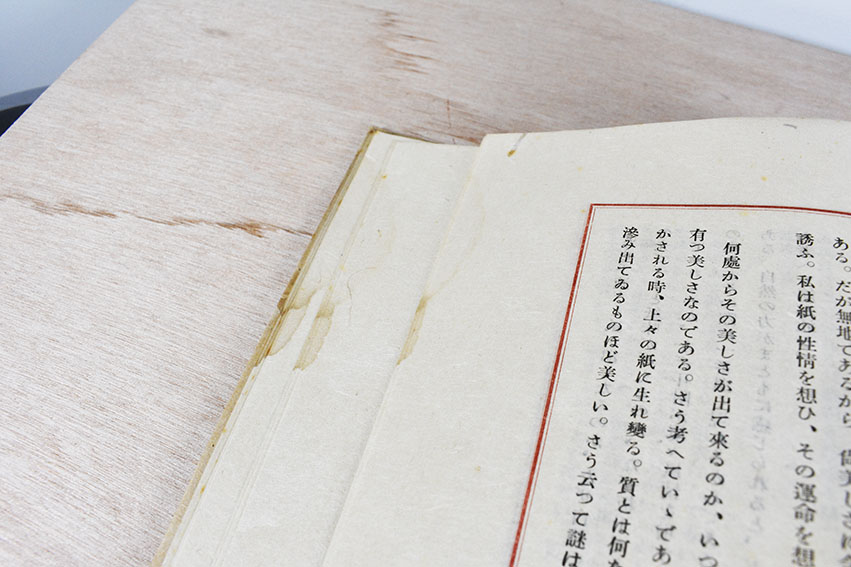 ある。だが無地であるから、尚美しさは
誘ふ。私は紙の性情を想ひ、その運命を想
何處からその美しさが出て來るのか、いつ
有つ美しさなのである。さう考へていゝであ
かされる時、上々の紙に生れ變る。質とは何
滲み出てゐるものほど美しい。さう云つて謎は